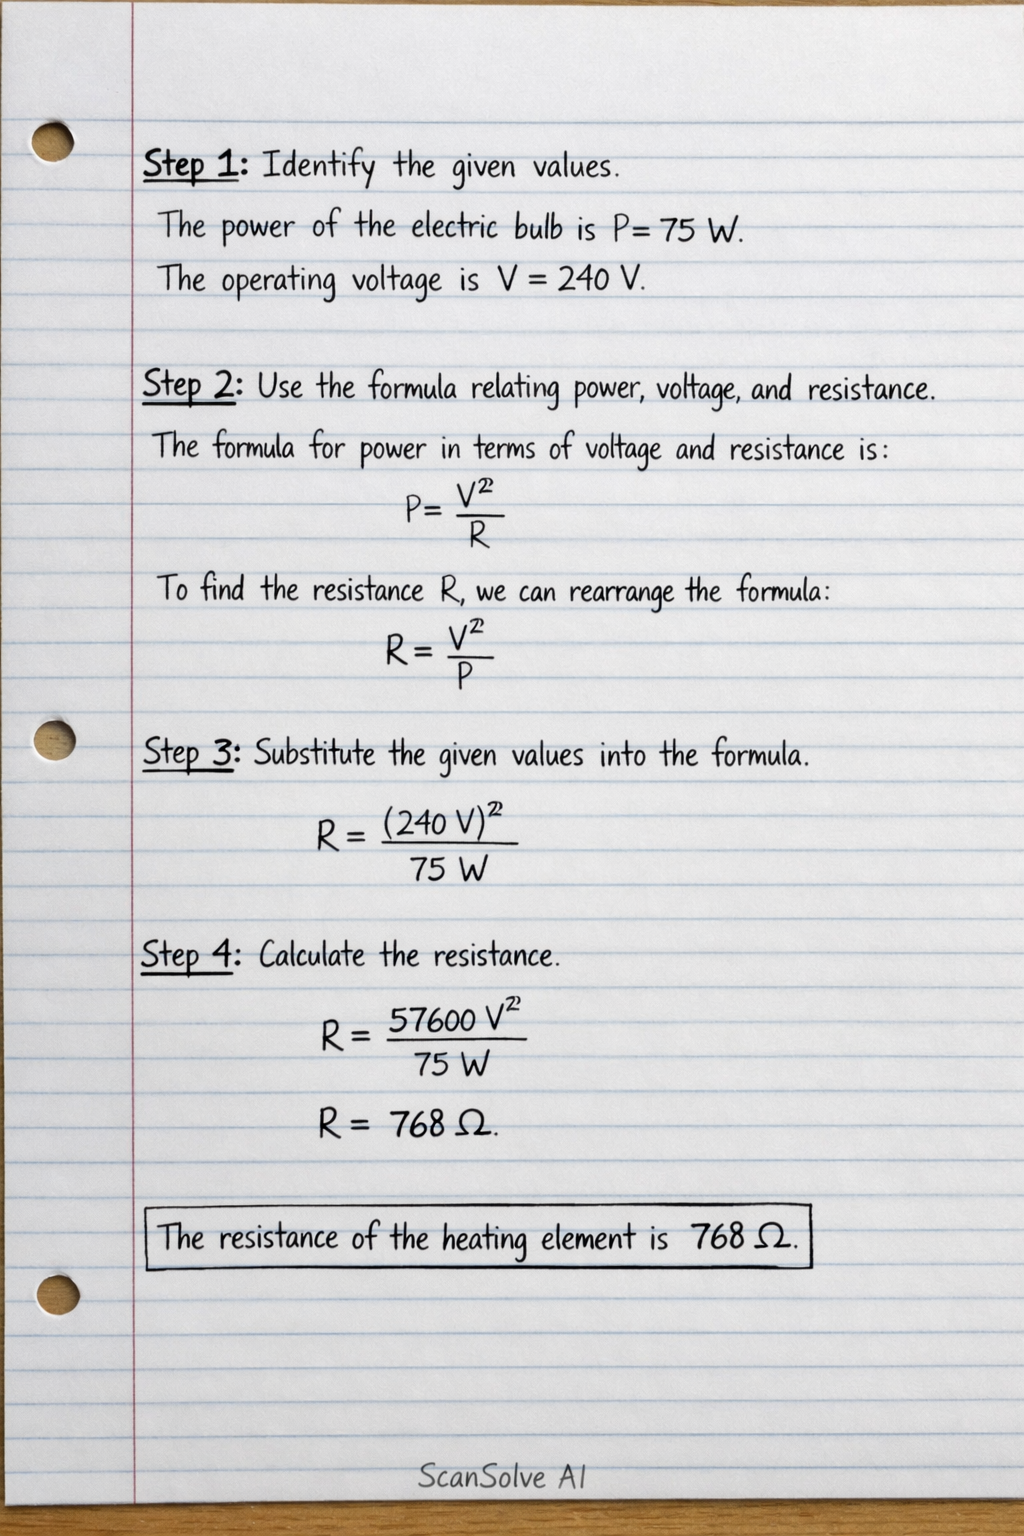 Step 1: Identify the given values.
The power of the electric bulb is P= 75 W.
The operating voltage is V = 240 V.
Step 2: Use the formula relating power, voltage, and resistance.
The formula for power in terms of voltage and resistance is:
P= V²/R
To find the resistance R, we can rearrange the formula:
R = V²/P
Step 3: Substitute the given values into the formula.
R = (240 V)²/75 W
Step 4: Calculate the resistance.
R = 57600 V²/75 W
R = 768 Ω.
The resistance of the heating element is 768 Ω.
ScanSolve AI